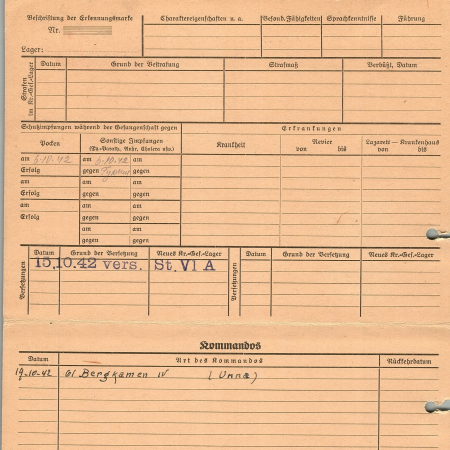 Beschriftung der Erkennungsmarke
Nr.
Lager:
Charaktereigenschaften u. a.
Gesond. Fähigkeiten
Sprachkenntnisse
Führung
Strafen im Kr.-Gef.-Lager
Datum
Grund der Bestrafung
Strafmaß
Verbüßt, Datum
Schutzimpfungen während der Gefangenschaft gegen
Erkrankungen
Pocken
Sonstige Impfungen
(Ty.-Paraty., Ruhr, Cholera usw.)
Krankheit
Revier
von bis
Lazarett — Krankenhaus
von bis
am 6.10.42 am 6.10.42 am
Erfolg gegen gegen
am am am
Erfolg gegen gegen
am am am
Erfolg gegen gegen
am am
gegen gegen
Versetzungen
Datum
Grund der Versetzung
Neues Kr.-Gef.-Lager
15.10.42 vers. St. VI A
Versetzungen
Datum
Grund der Versetzung
Neues Kr.-Gef.-Lager
Kommandos
Datum
Art des Kommandos
Rückkehrdatum
19.10.42 61 Bergkamen IV (Unna)